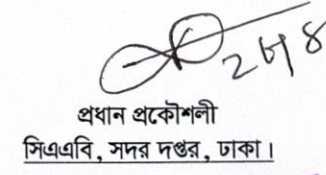 প্রধান প্রকৌশলী
সিএএবি, সদর দপ্তর, ঢাকা।